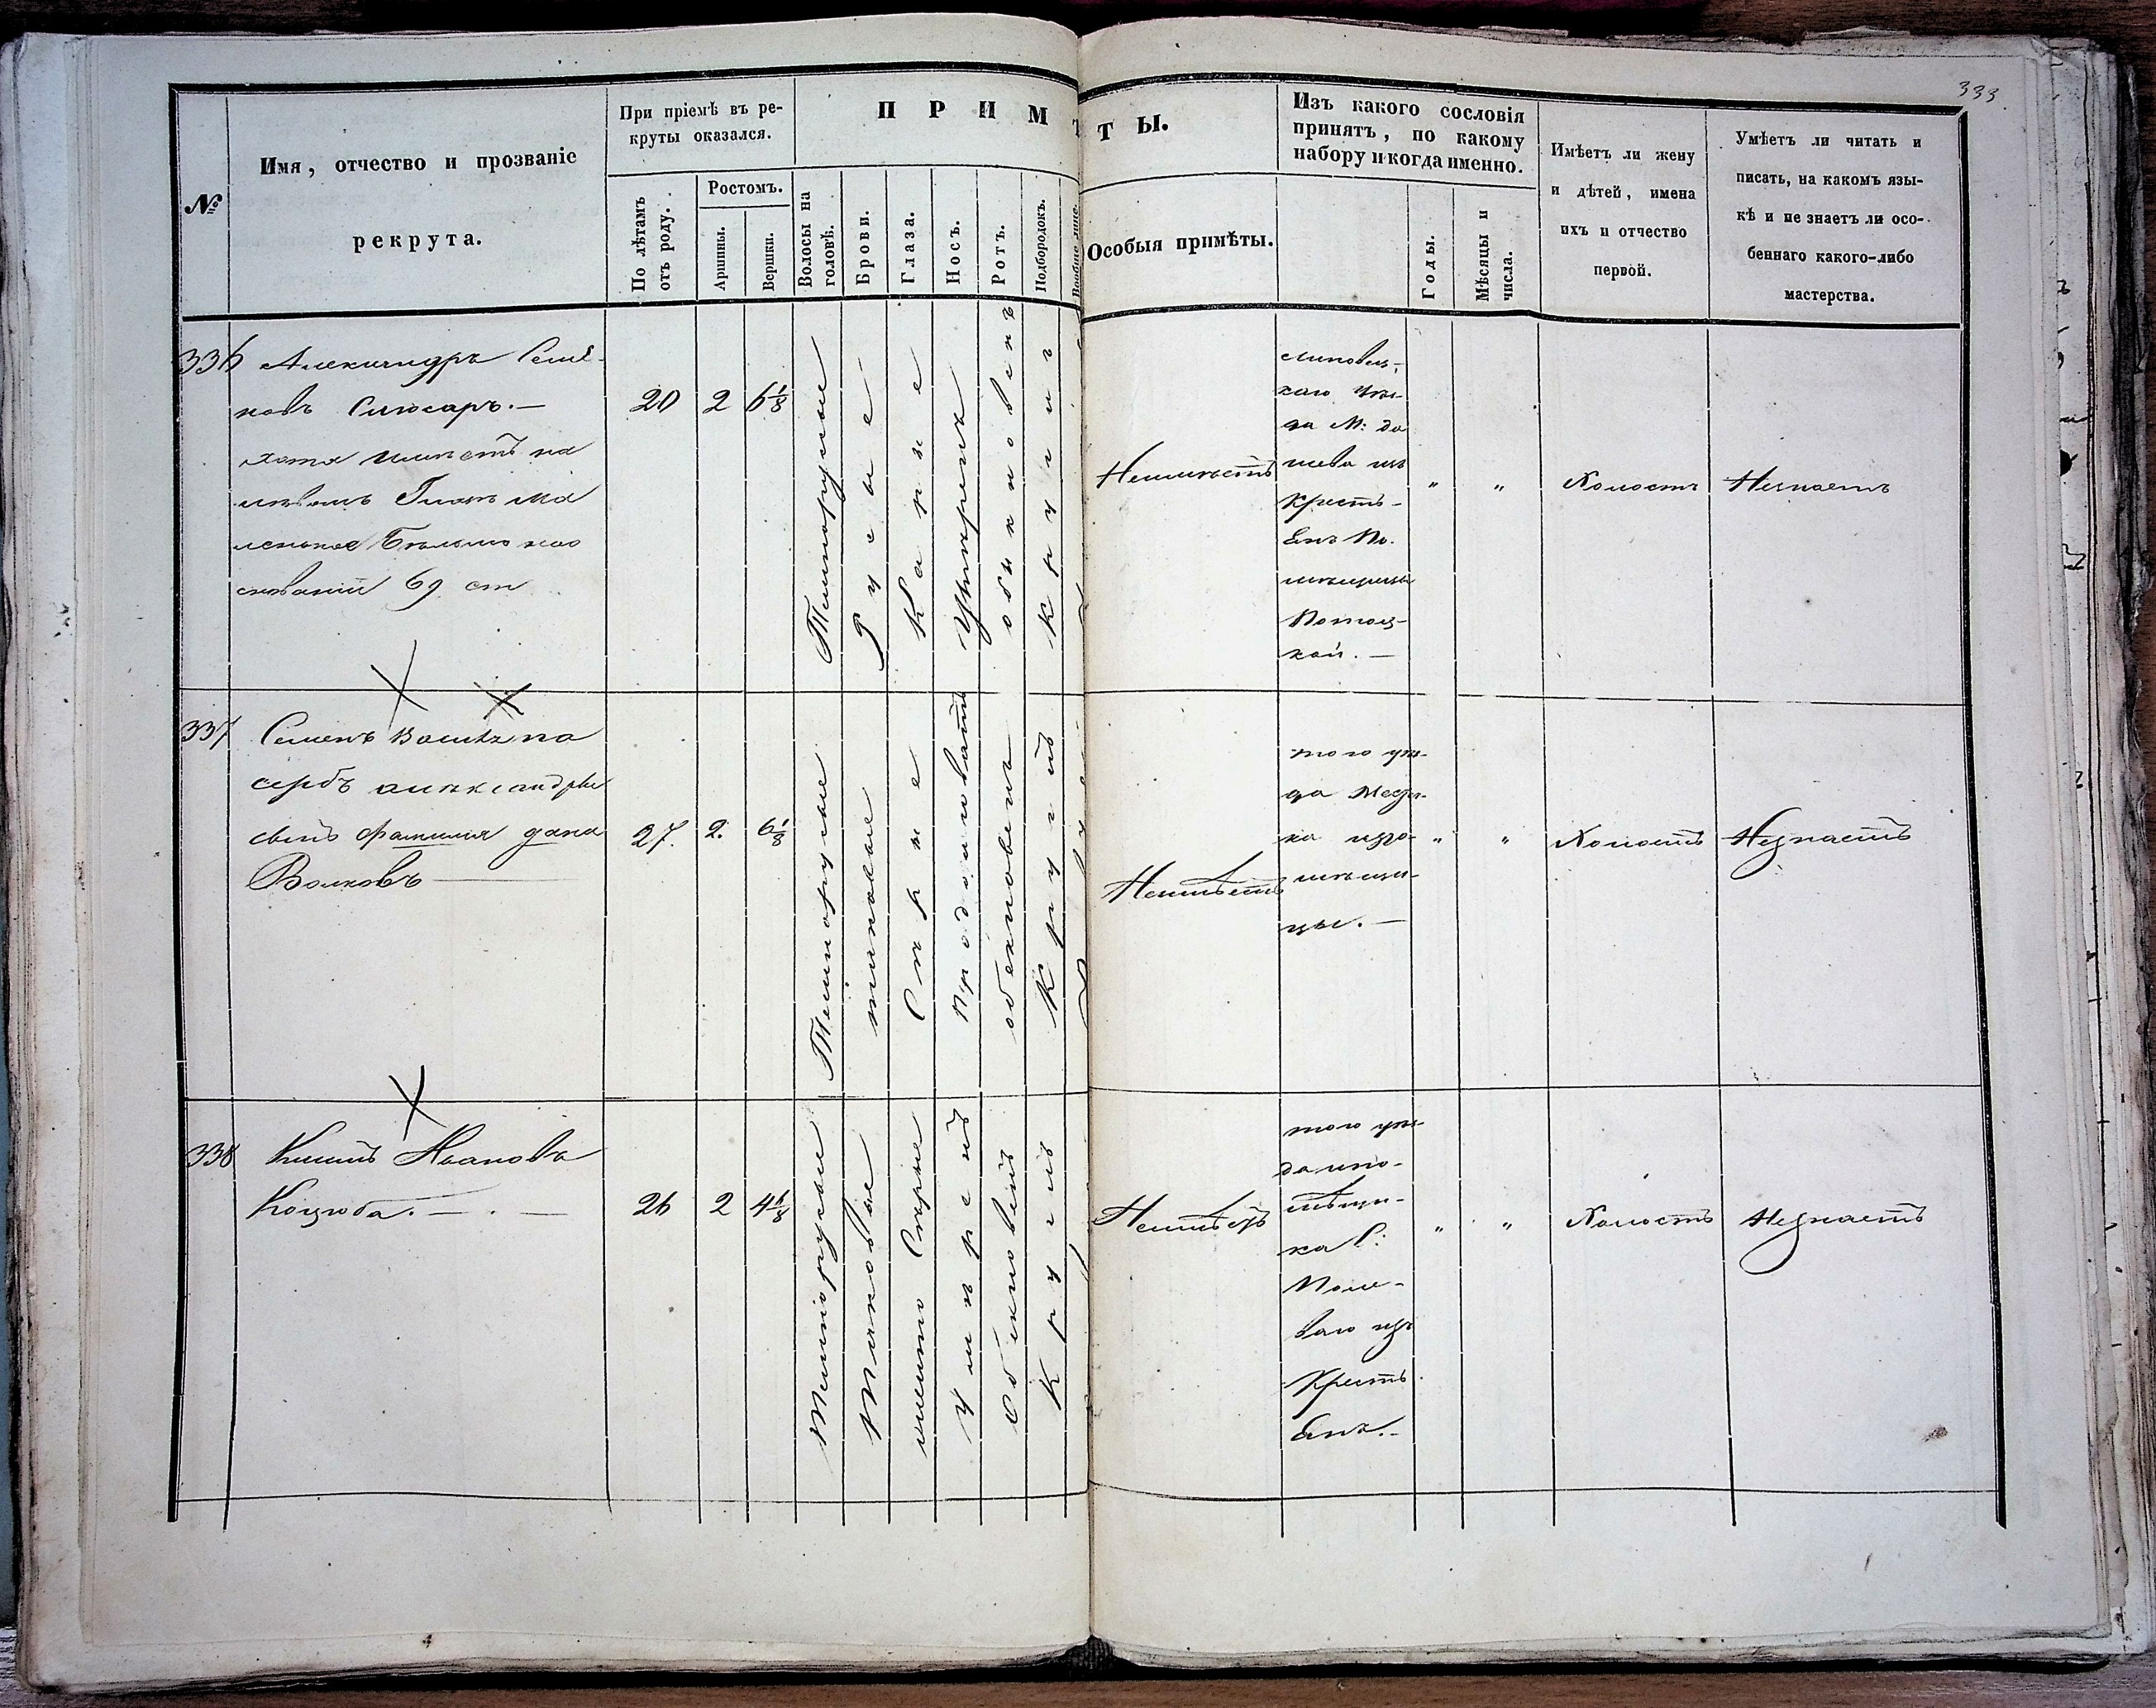 333.
№
Имя, отчество и прозваніе
рекрута.
При пріемѣ въ ре-
круты оказался.
По лѣтамъ
отъ роду.
Ростомъ.
Аршины.
Вершки.
П Р И М Ѣ Т Ы.
Волосы на
головѣ.
Брови.
Глаза.
Носъ.
Ротъ.
Подбородокъ.
Вообще лице.
Особыя примѣты.
Изъ какого сословія
принятъ, по какому
набору и когда именно.
Годы.
Мѣсяцы и
числа.
Имѣетъ ли жену
и дѣтей, имена
ихъ и отчество
первой.
Умѣетъ ли читать и
писать, на какомъ язы-
кѣ и не знаетъ ли осо-
беннаго какого-либо
мастерства.
336
Александръ Семе-
новъ Слюсаръ.—
хотя имѣетъ на
лѣвомъ Глазѣ ма
ленькое Бѣльмо на
69 ст
20
2
6⅛
Темнорусые
Русые
Каріе
Умѣренъ
обыкновенъ
Круглъ
Неимѣетъ
каго Уѣз-
да М:
изъ
Крестъ-
Янъ По-
мѣщицы
Потоц-
кой.—
"
"
Холостъ
Незнаетъ
337
Семенъ
сербъ александрые
фамилия дана
Волковъ—
27.
2.
6⅛
Темнорусые
таковые
Сѣрые
Продолговатъ
обыкновенъ
Круглъ
Неимѣетъ
того уѣз-
да
ка изъ по-
мѣщи-
цы.—
"
"
Холостъ
Незнаетъ
338
Климъ Ивановъ
Коцюба.—.—
26
2
4⁶⁄₈
Темнорусые
Таковые
Сѣрые
Умѣренъ
Обыкновенъ
Круглъ
Неимѣетъ
того уѣз-
да по-
мѣщи-
ка С:
Поле-
ваго изъ
Крестъ
Янъ.—
"
"
Холостъ
Незнаетъ